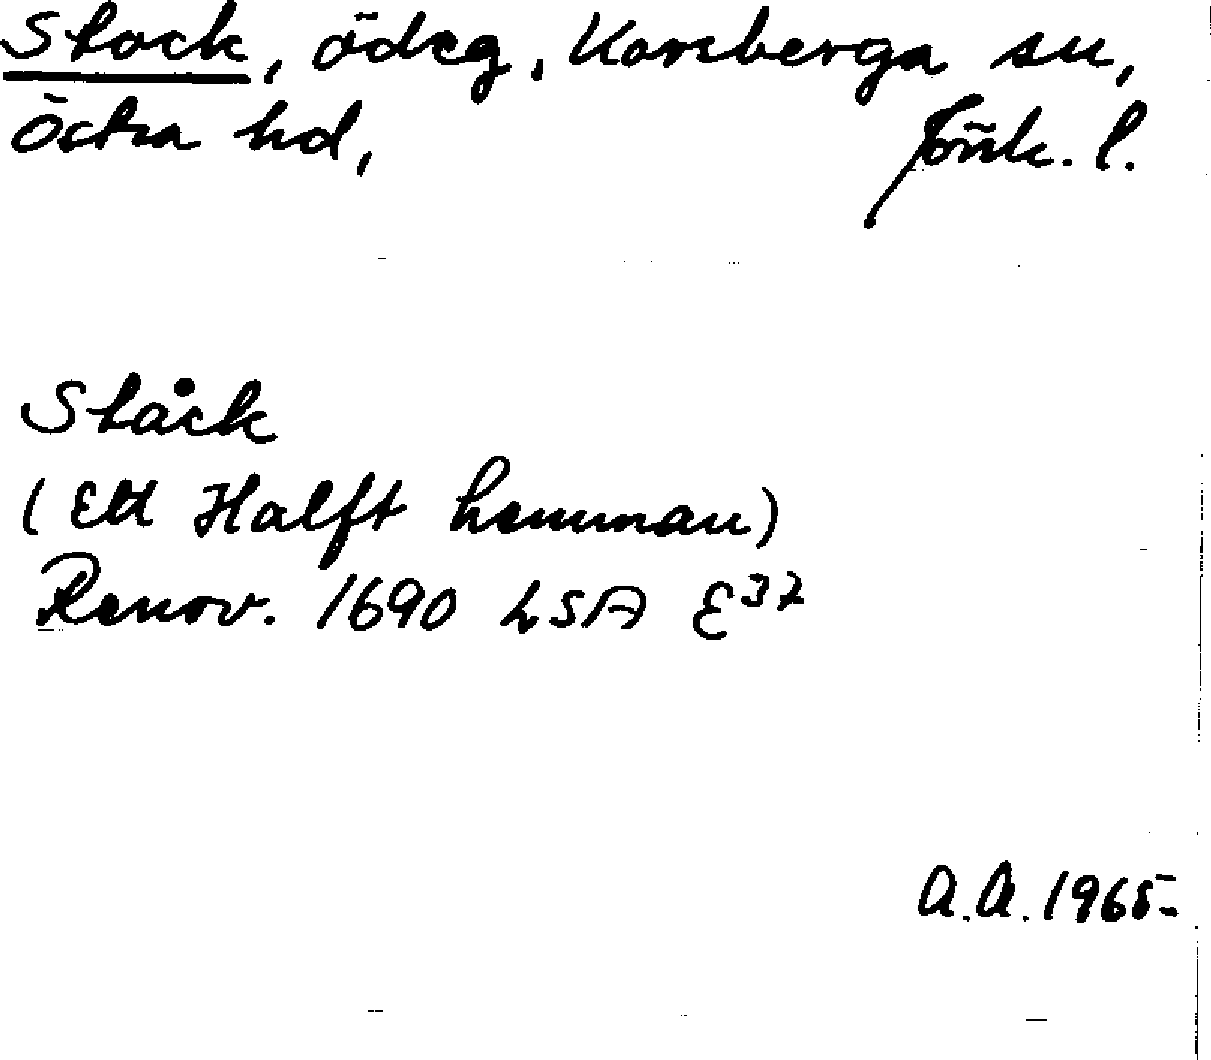 Stock, ödeg, Korsberga sn,
Östra hd, Jönk. l.
Ståck
(Ett Halft hemman)
Renov. 1690 LSA E³⁷
A.A. 1965